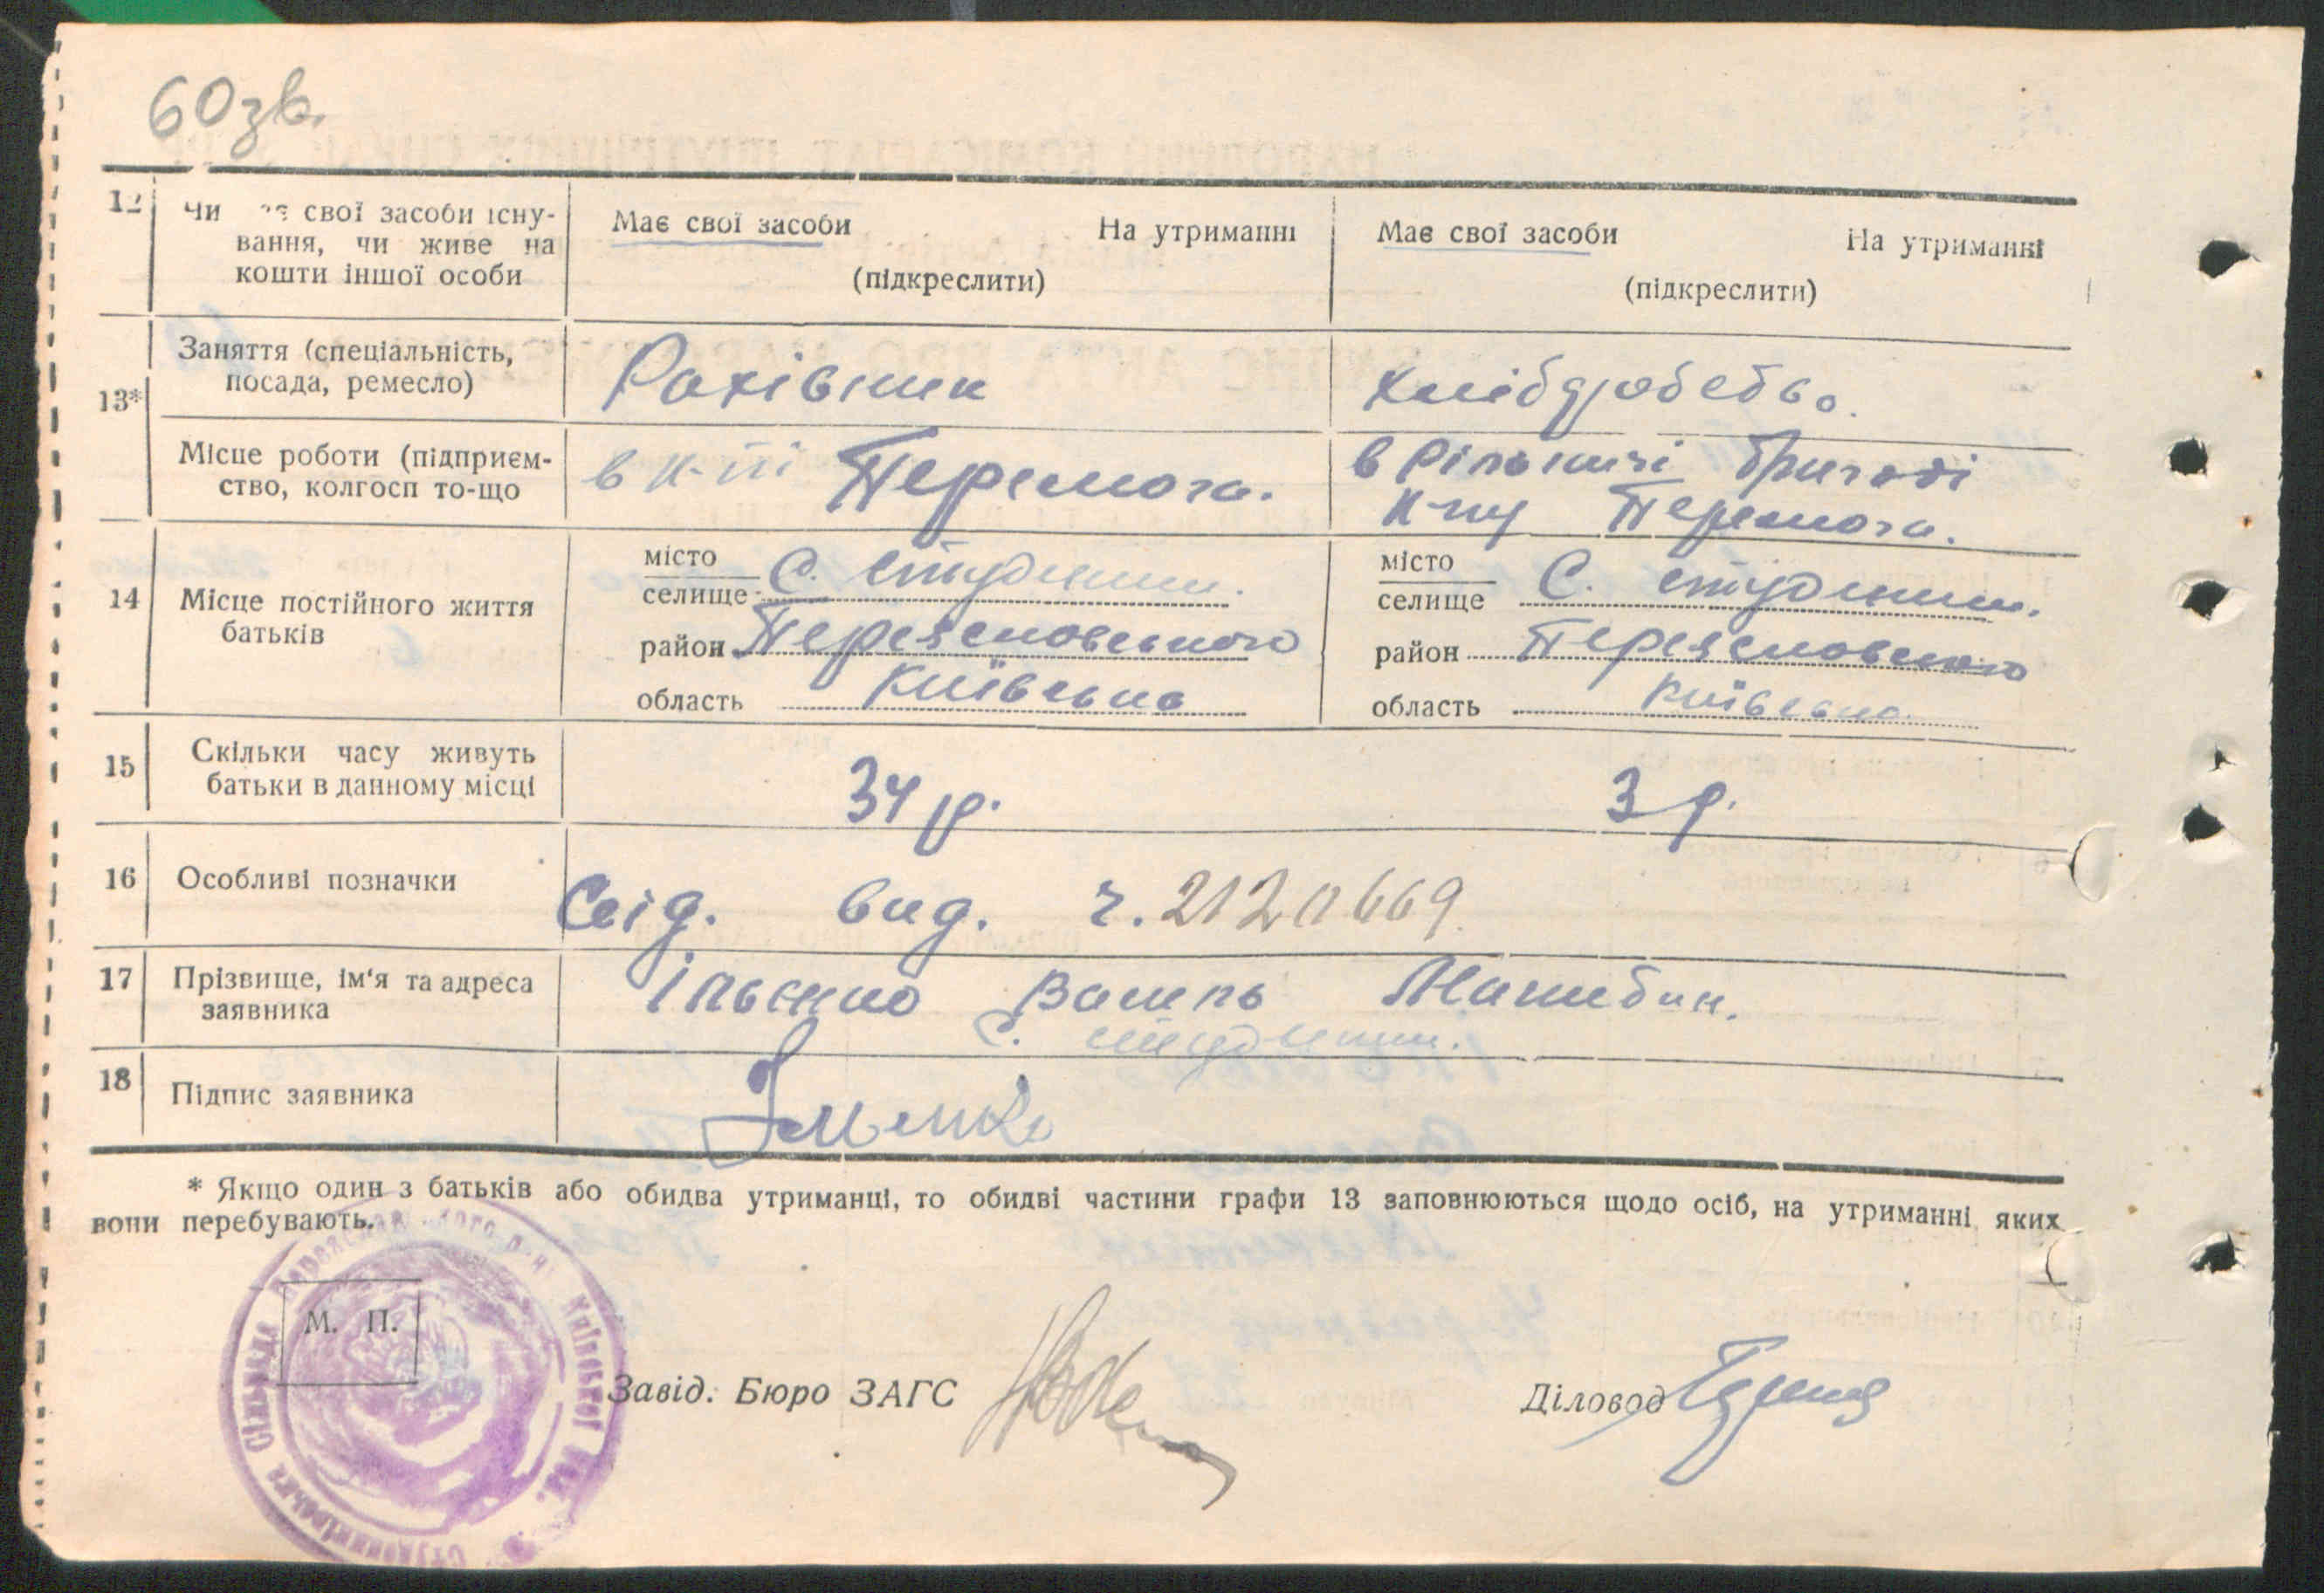 60 зв.
12 Чи має свої засоби існу- Має свої засоби На утриманні Має свої засоби На утриманні
вання, чи живе на
кошти іншої особи (підкреслити) (підкреслити)
Заняття (спеціальність,
посада, ремесло) Рахівник Хлібдробство.
13*
Місце роботи (підприєм- в к-пі Перемога. в рільничі бригаді
ство, колгосп то-що к-пу Перемога.
місто місто
селище С. Студеник. селище С. Студеник.
14 Місце постійного життя
батьків район Переяславського район Переяславського
область Київська область Київська
15 Скільки часу живуть
батьки в данному місці 34 р. 3 р.
16 Особливі позначки Свід. вид. ч. 2120669
17 Прізвище, ім'я та адреса Ільєнко Василь
заявника С. Студеник.
18 Підпис заявника
* Якщо один з батьків або обидва утриманці, то обидві частини графи 13 заповнюються щодо осіб, на утриманні яких
вони перебувають.
М. П.
Завід. Бюро ЗАГС Діловод
Сільрада Київської обл.